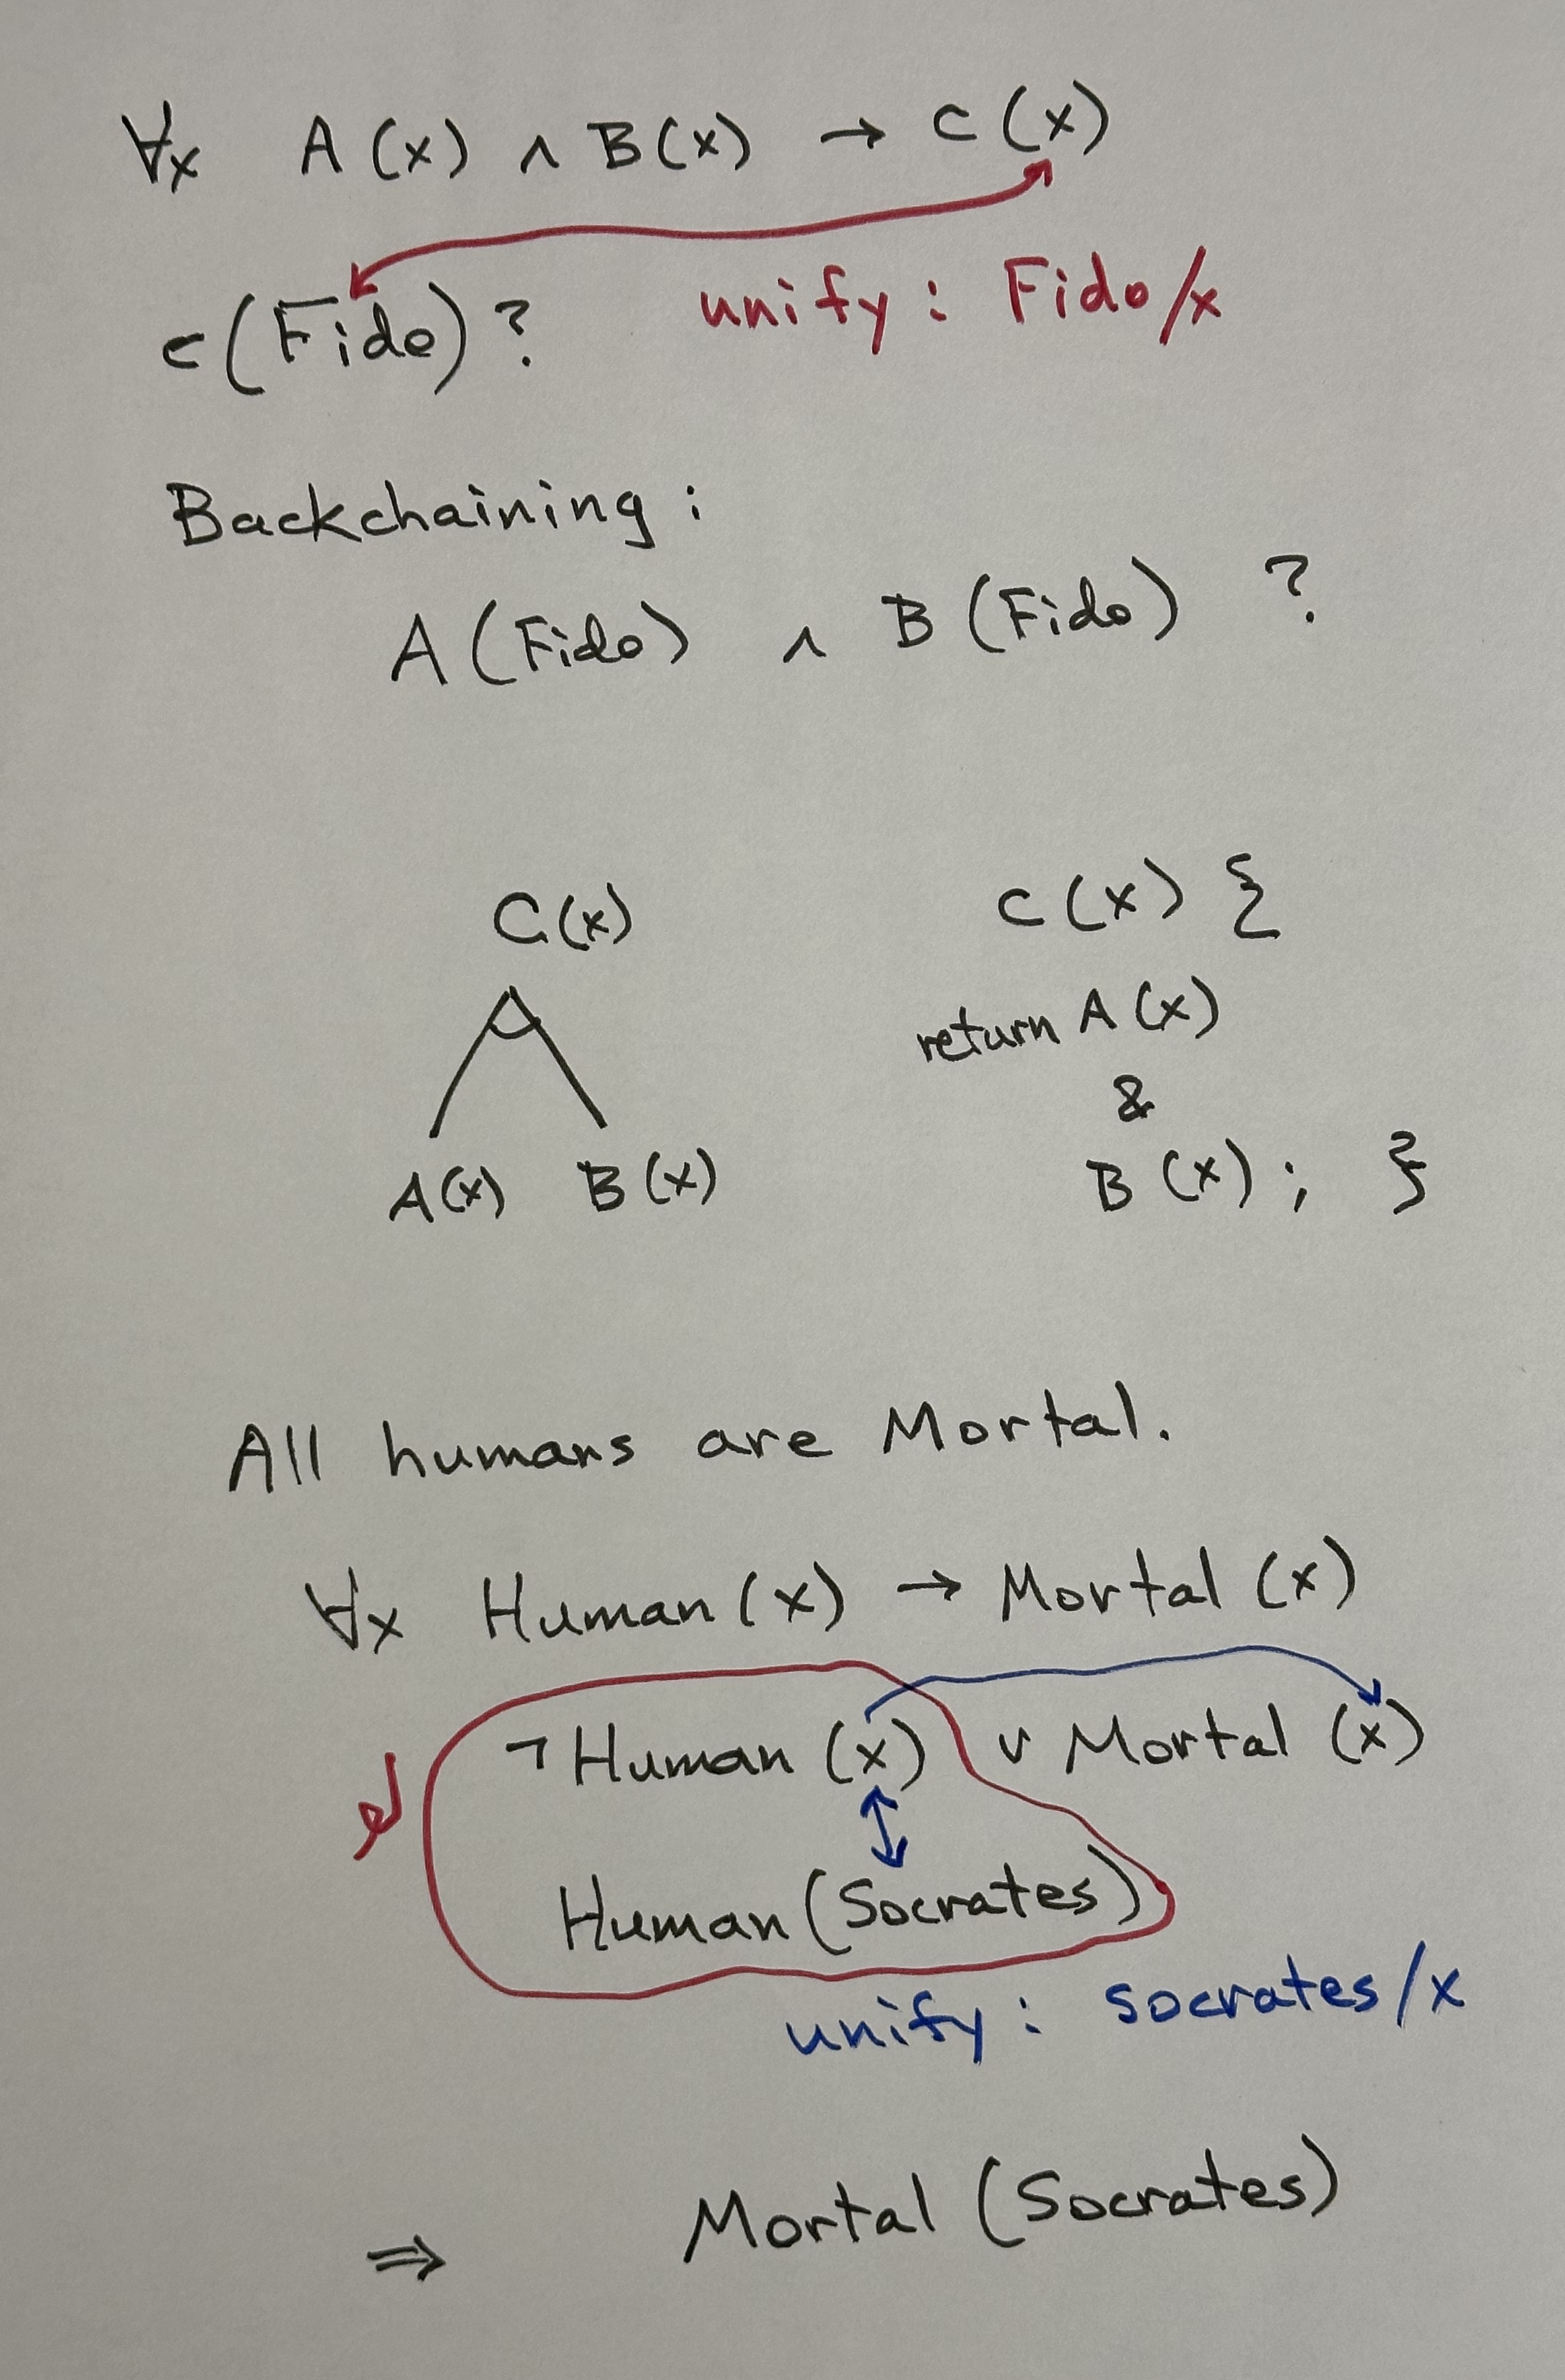 ∀x A(x) ∧ B(x) → C(x)
C(Fido)? unify: Fido/x
Backchaining:
A(Fido) ∧ B(Fido) ?
C(x)
A(x) B(x)
C(x) {
return A(x)
&
B(x); }
All humans are Mortal.
∀x Human(x) → Mortal(x)
¬Human(x) ∨ Mortal(x)
Human(Socrates)
unify: socrates/x
⇒ Mortal(Socrates)